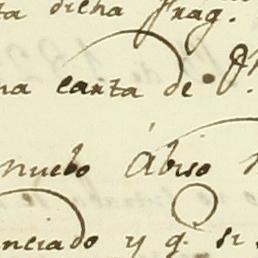 ta dicha frag.
na carta de
nuebo Abiso
nciado y q. si